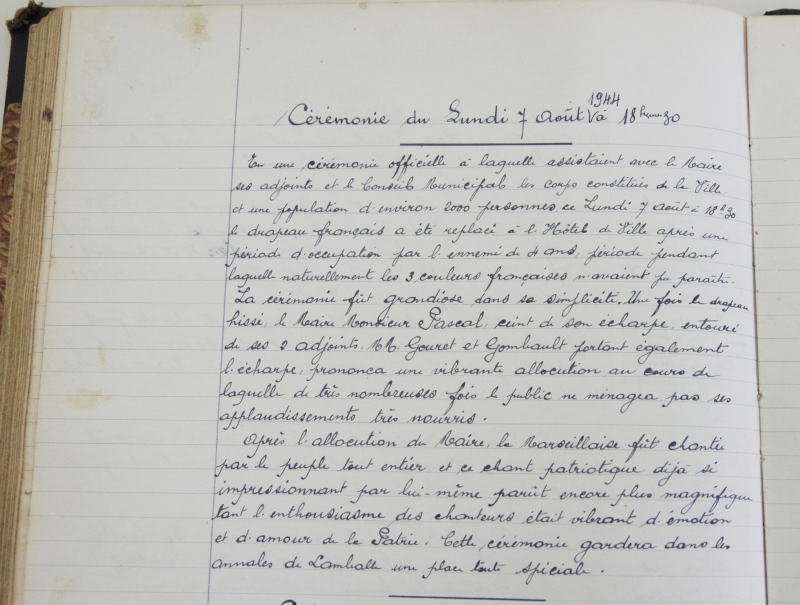 1944
Cérémonie du Lundi 7 Août à 18 heures 30
En une cérémonie officielle à laquelle assistaient avec le Maire
ses adjoints et le Conseil Municipal les corps constitués de la Ville,
et une population d'environ 2000 personnes, ce Lundi 7 août à 18h30
le drapeau français a été replacé à l'Hôtel de Ville après une
période d'occupation par l'ennemi de 4 ans, période pendant
laquelle naturellement les 3 couleurs françaises n'avaient pu paraître.
La cérémonie fût grandiose dans sa simplicité. Une fois le drapeau
hissé, le Maire Monsieur Pascal, ceint de son écharpe, entouré
de ses 2 adjoints, MM. Gouret et Gombault portant également
l'écharpe, prononça une vibrante allocution au cours de
laquelle de très nombreuses fois le public ne ménagea pas ses
applaudissements très nourris.
Après l'allocution du Maire, la Marseillaise fût chantée
par le peuple tout entier et ce chant patriotique déjà si
impressionnant par lui-même parût encore plus magnifique
tant l'enthousiasme des chanteurs était vibrant d'émotion
et d'amour de la Patrie. Cette cérémonie gardera dans les
annales de Lamballe une place toute spéciale.